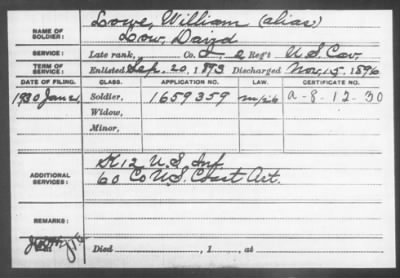 NAME OF SOLDIER: Lowe, William (alias)
Low, David
SERVICE: Late rank, Co. I, 2 Reg't U.S. Cav.
TERM OF SERVICE: Enlisted Sep. 20, 1893 Discharged Nov. 15, 1896
DATE OF FILING. CLASS. APPLICATION NO. LAW. CERTIFICATE NO.
1930 Jan 2 Soldier, 1659359 a-8-12-30
Widow,
Minor,
ADDITIONAL SERVICES: K 12 U.S. Inf
60 Co U.S. Coast Art.
REMARKS:
Died , 1 , at